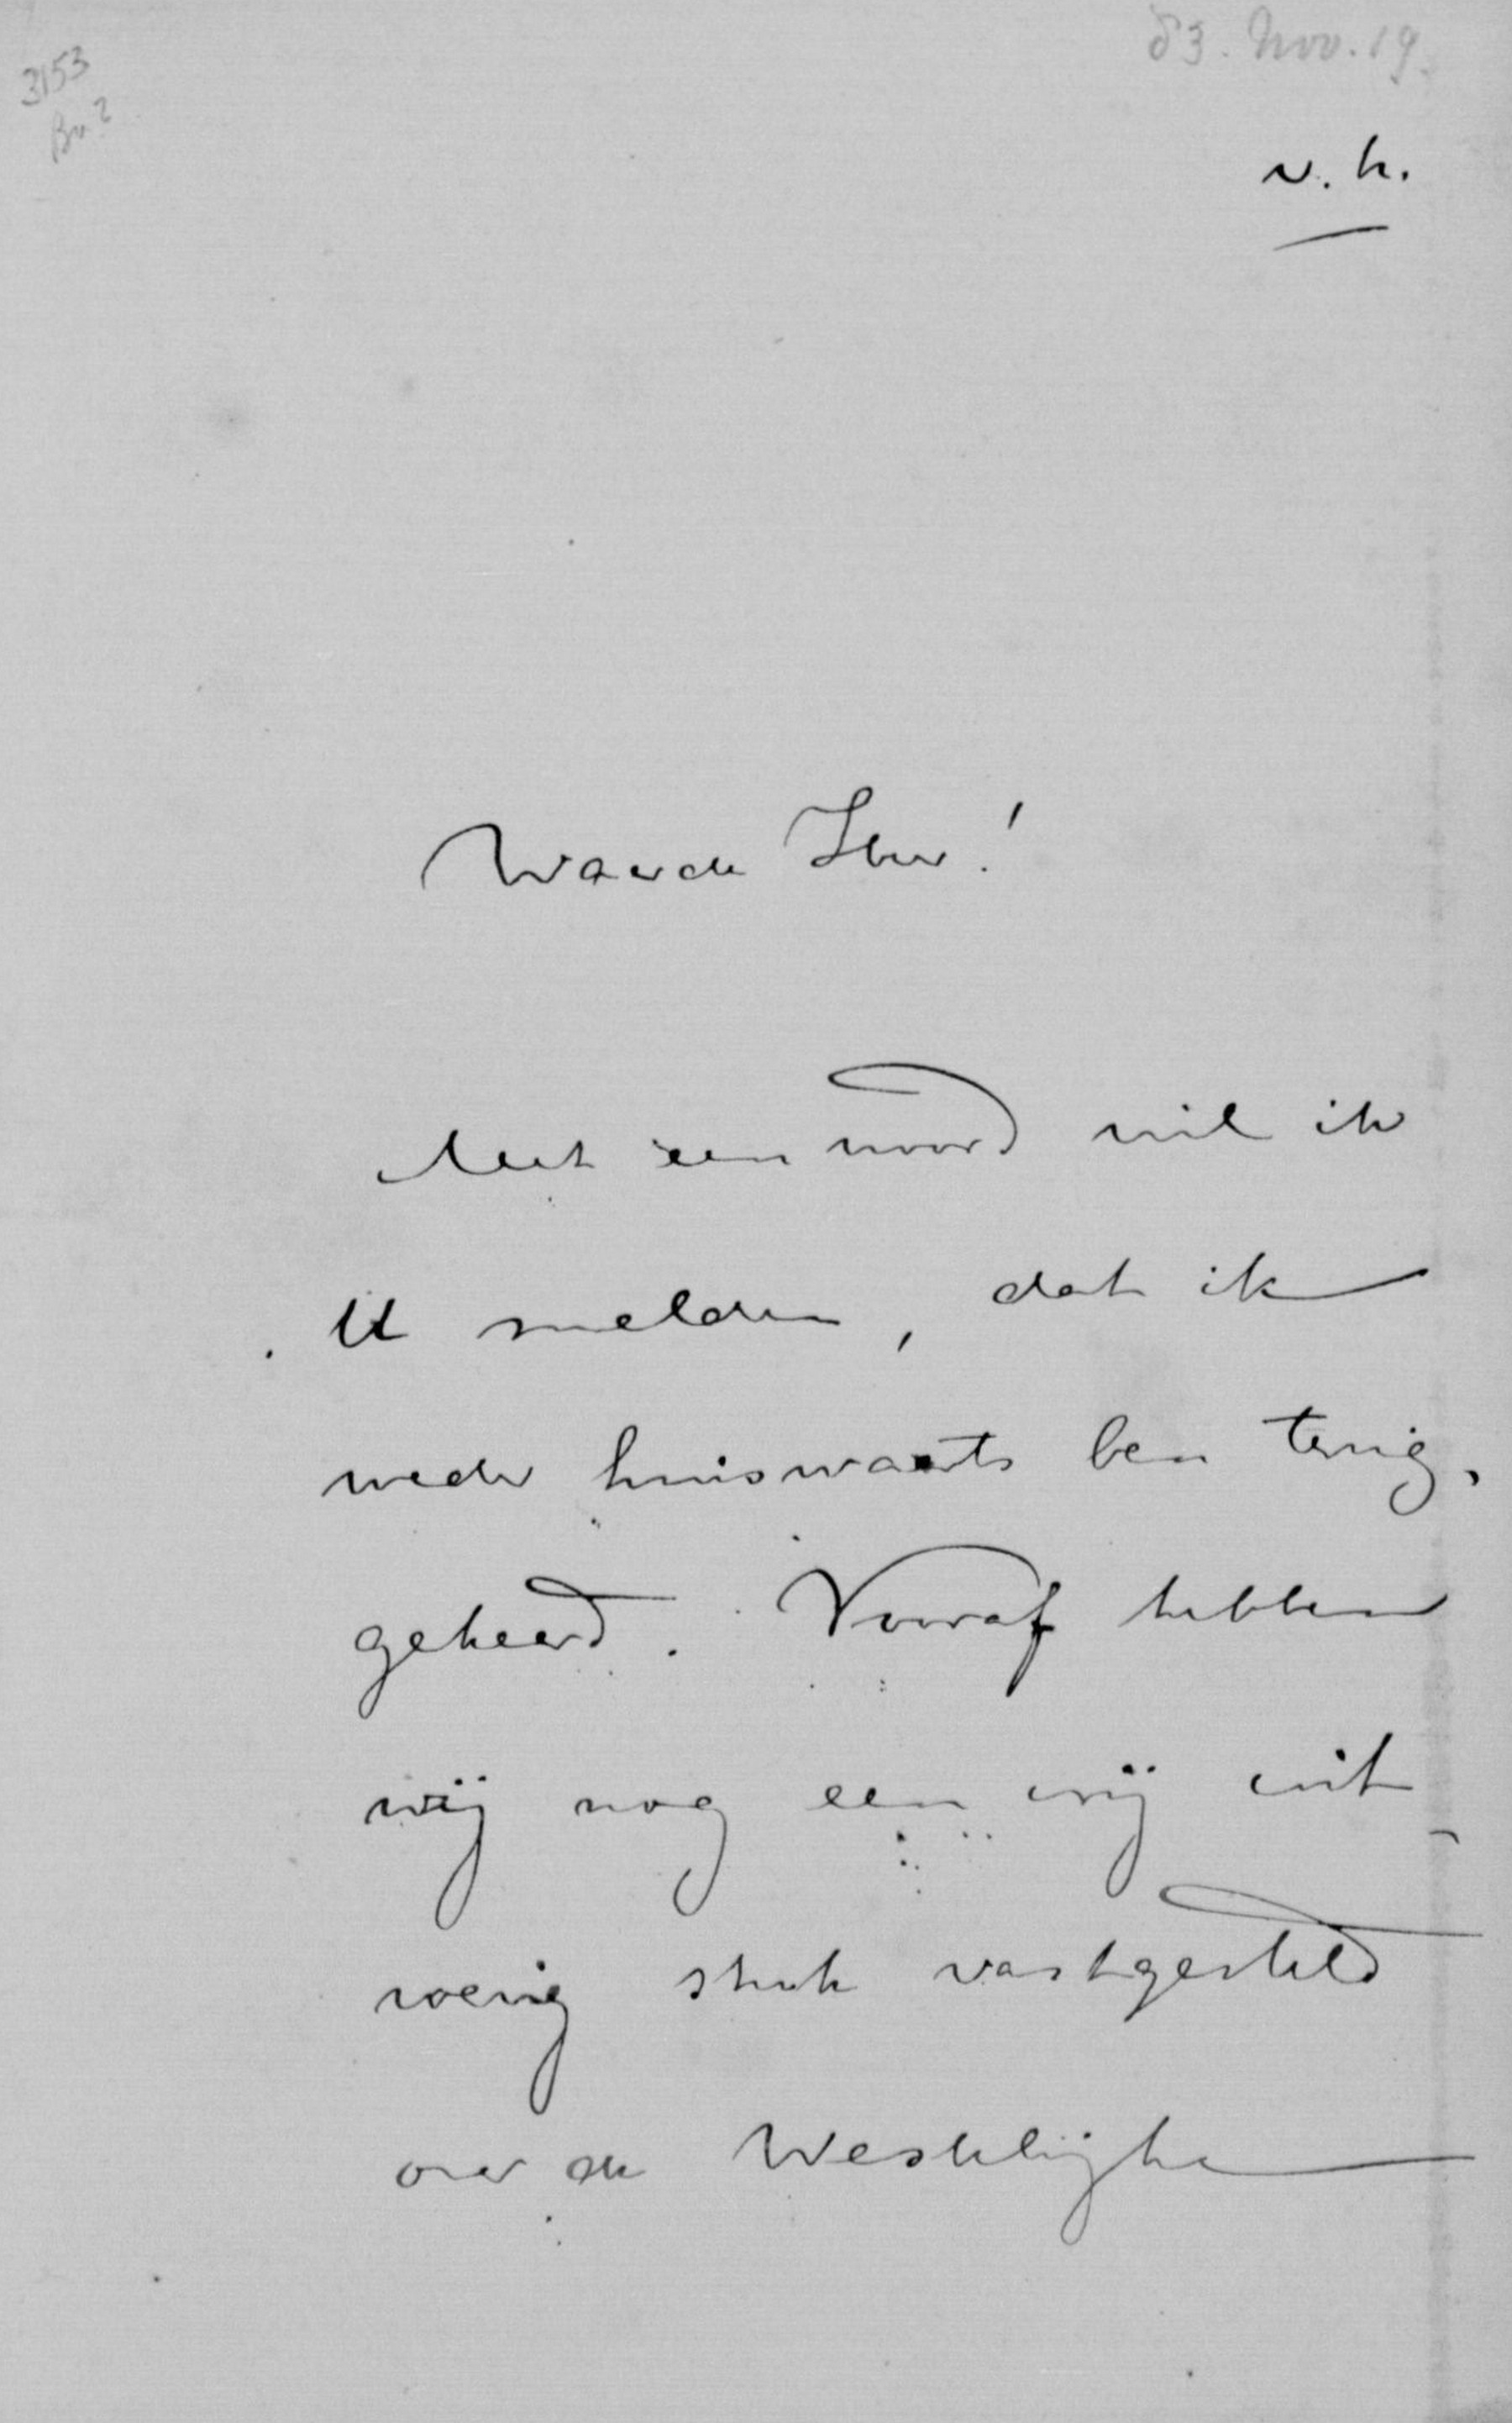 3153
Bu?
83. Nov. 19.
v. h.
Waarde Heer!
Met een woord wil ik
U melden, dat ik
weder huiswaarts ben terug,
gekeerd. Vooraf hebben
wij nog een vrij uit_
voerig stuk vastgesteld
over de Westelijke